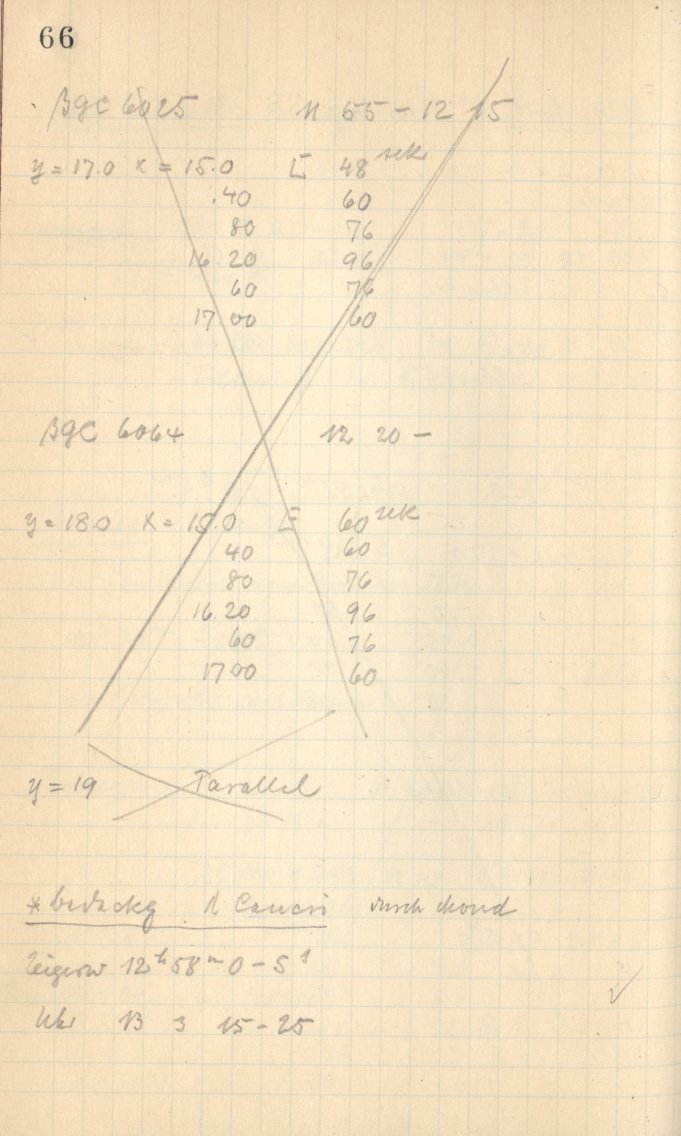 66
βgc 6025 11 55 - 12 15
y = 17.0 x = 15.0 E 48 sek
.40 60
80 76
16.20 96
60 76
17.00 60
βgc 6064 12 20 -
y = 18.0 x = 15.0 E 60 sek
40 60
80 76
16.20 96
60 76
17 00 60
y = 19 Parallel
*bedeckg Cancri durch Mond
12h 58m 0 - 5s
Uhr 13 3 15 - 25